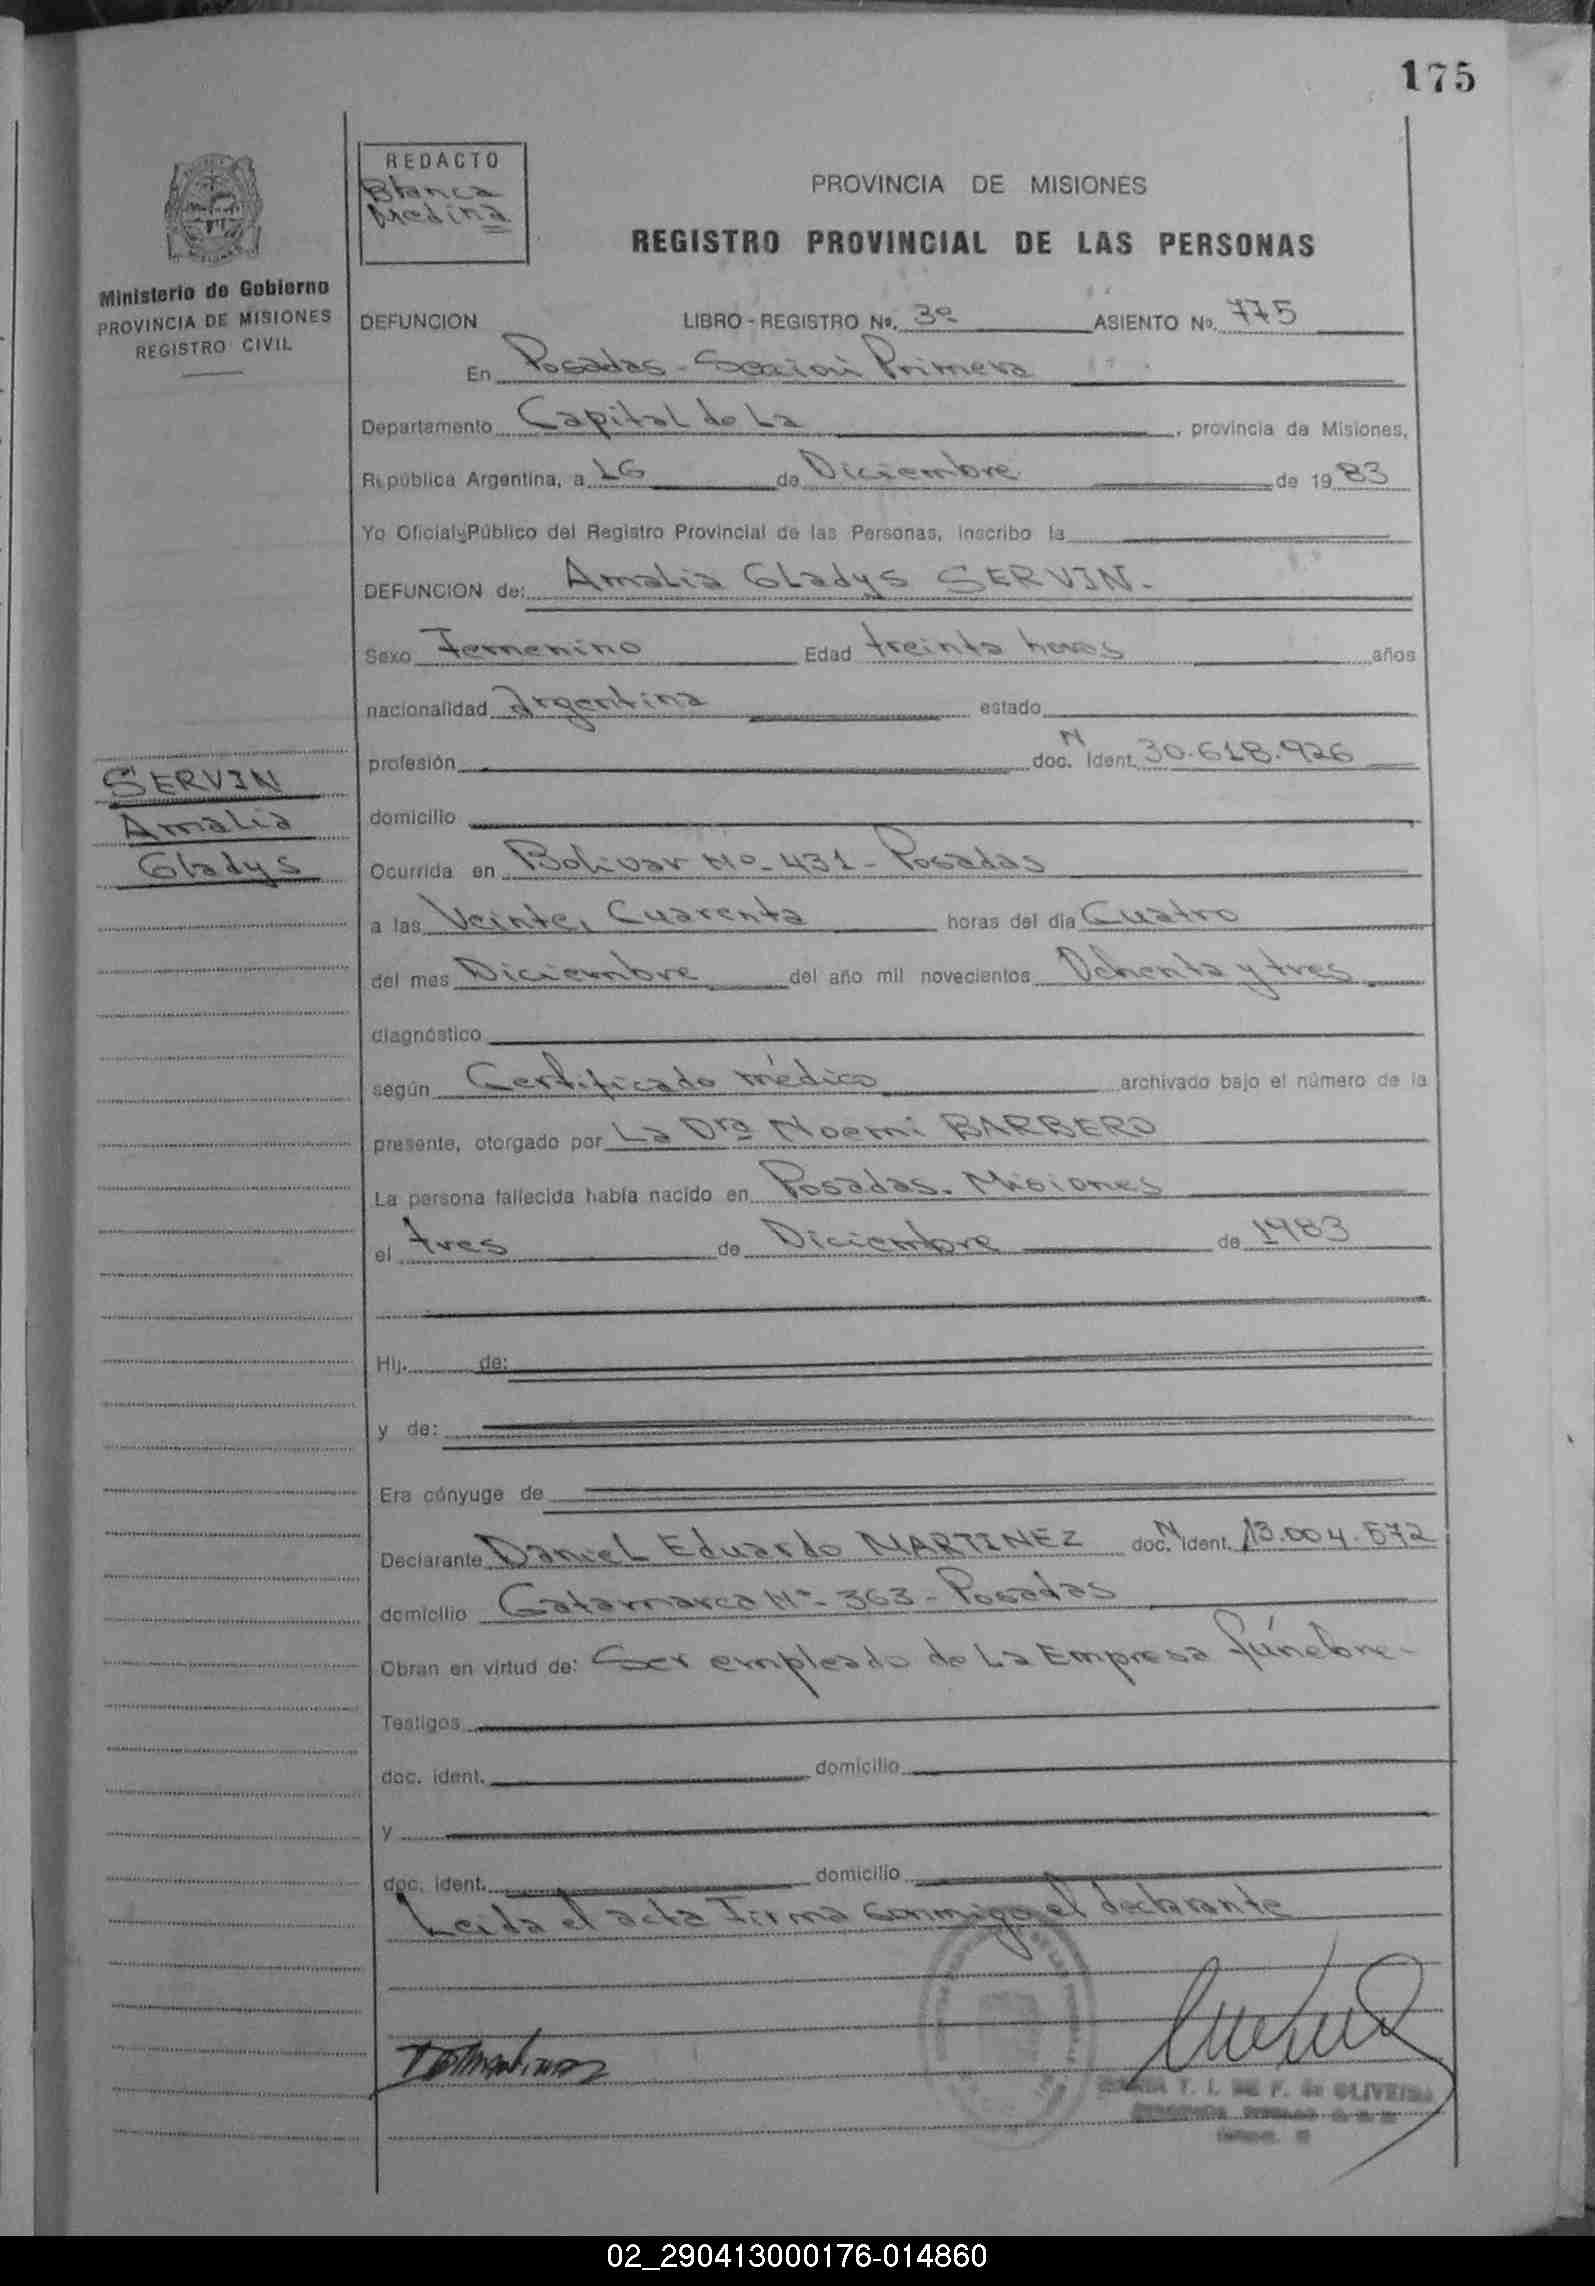 175
REDACTO
Blanca
Medina
PROVINCIA DE MISIONES
REGISTRO PROVINCIAL DE LAS PERSONAS
Ministerio de Gobierno
PROVINCIA DE MISIONES
REGISTRO CIVIL
DEFUNCION LIBRO - REGISTRO No. 3º ASIENTO No. 775
En Posadas - Sección Primera
Departamento Capital de La, provincia de Misiones,
República Argentina, a 16 de Diciembre de 1983
Yo Oficial Público del Registro Provincial de las Personas, inscribo la
DEFUNCION de: Amalia Gladys SERVIN.-
Sexo Femenino Edad treinta horas años
nacionalidad Argentina estado
profesión doc. N ident. 30.618.926
SERVIN
Amalia
Gladys
domicilio
Ocurrida en Bolivar Nº- 431 - Posadas
a las Veinte, Cuarenta horas del día Cuatro
del mes Diciembre del año mil novecientos Ochenta y tres
diagnóstico
según Certificado médico archivado bajo el número de la
presente, otorgado por La Dra Noemi BARBERO
La persona fallecida había nacido en Posadas. Misiones
el tres de Diciembre de 1983
Hij. de:
y de:
Era cónyuge de
Declarante Daniel Eduardo MARTINEZ doc. N ident. 13.004.572
domicilio Catamarca Nº- 363 - Posadas
Obran en virtud de: Ser empleado de La Empresa fúnebre-
Testigos
doc. ident. domicilio
y
doc. ident. domicilio
Leida el acta Firma conmigo el declarante
T. I. DE F. de OLIVEIRA
02_290413000176-014860